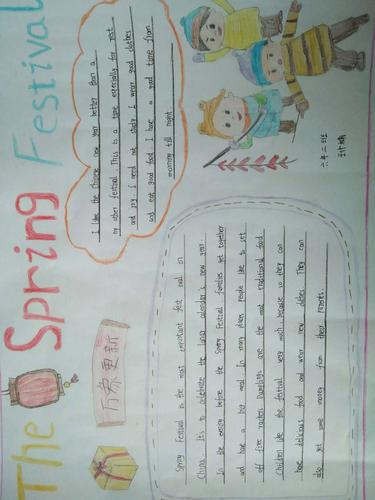 The Spring Festival
I like the Chinese new year better than a
ny other festival. This is a time especially for rest
and joy. I need not study. I wear good clothes
and eat good food. I have a good time from
morning till night.
六年二班
万象更新
Spring Festival is the most important fest ival in
China. It's to celebrate the lunar calendar's new year.
In the evening before the Spring Festival families get together
and have a big meal. In many places people like to set
off fire crackers. Dumplings are the most traditional food.
Children like the festival very much, because so they can
have delicious food and wear new clothes. They can
also get some money from their parents.